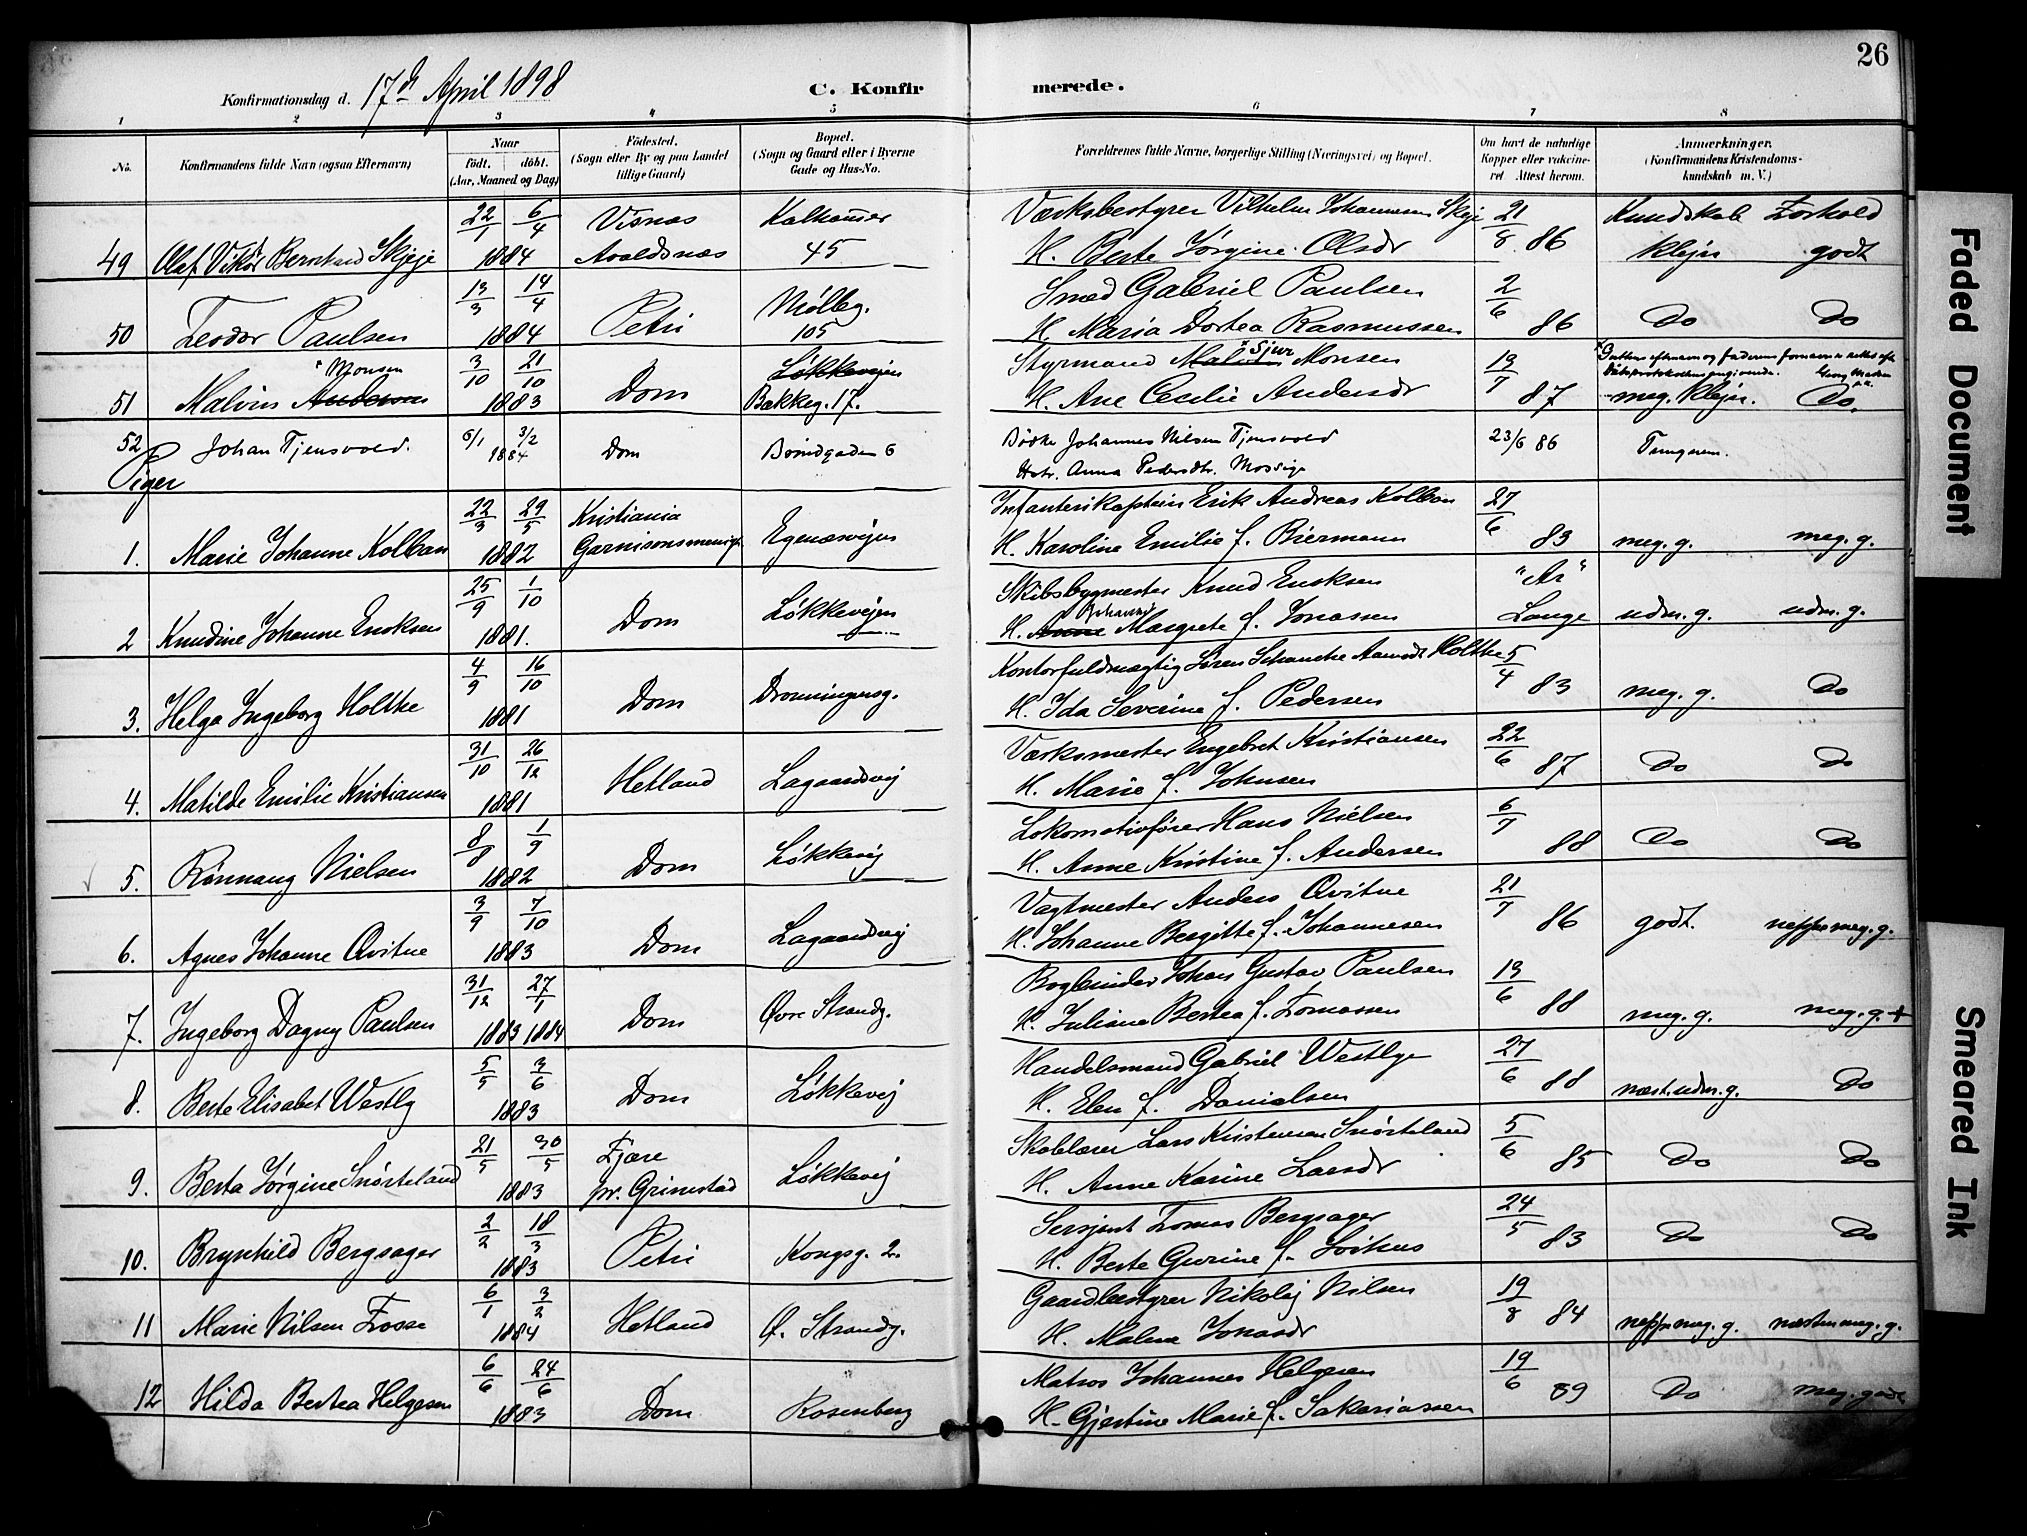 26
Konfirmationsdag d. 17de April 1898 C. Konfirmerede.
1 2 3 4 5 6 7 8
No. Konfirmandens fulde Navn (ogsaa Efternavn) Naar født, døbt. (Aar, Maaned og Dag) Födested. (Sogn eller By og paa Landet tillige Gaard) Bopæl. (Sogn og Gaard eller i Byerne Gade og Hus-No. Forældrenes fulde Navne, borgerlige Stilling (Næringsvei) og Bopæl. Om havt de naturlige Kopper eller vakcineret. Attest herom. Anmærkninger. (Konfirmandens Kristendomskundskab m. V.)
22/1 6/4 Visnes Kalhammer Værksbestyrer Vilhelm Johannesen Skjeje 21/8 86 Kundskab Forhold
49 Olaf Viktor Bernhard Skjeje 1884 Avaldsnæs 45 H. Berte Jørgine Olsdr klejn godt
13/3 14/4 Petri Mølleg. Smed Gabriel Paulsen 2/6 86
50 Teodor Paulsen 1884 105 H. Maria Dortea Rasmussen Do Do
" Monsen 3/10 21/10 Dom Løkkevejen Styrmand Malvin "Sjur Monsen 19/7 87 Guttens efternavn og faderens fornavn rettet efter
51 Malvin Andersen 1883 Bakkeg. 17. H. Ane Cecilie Andersdr meg. klejn. Do.
52 Johan Tjensvold. 6/1 3/2 1884 Dom Brøndgaden 6 Bødker Johannes Nilsen Tjensvold 23/6 86
Hstr. Anna Pedersdtr. Mossige
Piger
22/3 29/5 Kristiania Egenæsvejen Infanterikaptein Erik Andreas Kolban 27/6 83
1. Marie Johanne Kolban 1882 Garnisonsmenigh. H. Karoline Emilie f. Biermann meg. g. meg. g.
25/9 1/10 Dom Løkkevejen Skibsbygmester Knud Eriksen "Ar"
2 Knudine Johanne Eriksen 1881. H. Anne Johanne Margrete f. Jonassen Lange udm. g. udm. g.
4/9 16/10 Dom Dronningensg. Kontorfuldmægtig Søren Schancke Aamodt Holtke 5/4 83
3. Helga Ingeborg Holtke 1881 H. Ida Severine f. Pedersen meg. g. Do
31/10 26/12 Hetland Lagaardsvej Værksmester Engebret Kristiansen 22/6 87
4. Matilde Emilie Kristiansen 1881 H. Marie f. Johnsen Do Do
8/8 1/9 Dom Løkkevej Lokomotivfører Hans Nielsen 6/7 88
5. Rønnaug Nielsen 1882 H. Anne Kristine f. Andersen Do Do
3/9 7/10 Dom Lagaardsvej Vagtmester Anders Qvitne 21/7 86
6. Agnes Johanne Qvitne 1883 H. Johanne Bergitte f. Johannesen godt. neppe meg. g.
31/12 27/1 Dom Øvre Strandg. Bogbinder Johan Gustav Paulsen 19/6 88
7. Ingeborg Dagny Paulsen 1883 1884 H. Juliane Bertea f. Tomassen meg. g. meg. g. +
5/5 3/6 Dom Løkkevej Handelsmand Gabriel Westlye 27/6 88
8. Berte Elisabet Westly 1883 H. Elen f. Danielsen næst. udm. g. Do
21/5 30/5 Fjære Løkkevej Skolelærer Lars Kristensen Snørteland 5/6 85
9. Berta Jørgine Snørteland 1883 pr. Grimstad H. Anne Karine Larsdr Do Do
2/2 18/3 Petri Kongsg. 2. Sersjent Tomas Bergsager 24/5 83
10. Brynhild Bergsager 1883 H. Berte Gurine f. Sørhus Do Do
6/1 3/2 Hetland Ø. Strandg. Gaardbestyrer Nikolej Nilsen 19/8 84
11 Marie Nilsen Fosse 1884 H. Malene Jonasdr neppe meg. g. næsten meg. g.
6/6 24/6 Dom Rosenberg Matros Johannes Helgesen 19/6 89
12 Hilda Bertea Helgesen 1883 H. Gjertine Marie f. Sakariassen Do meg. godt
Faded Document
Smeared Ink